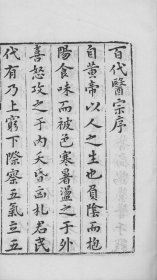 百代醫宗序
自黃帝以人之生也負陰而抱
陽食味而被色寒暑盪之于外
喜怒攻之于內天昏凶札君民
代有乃上窮下際察五氣立五